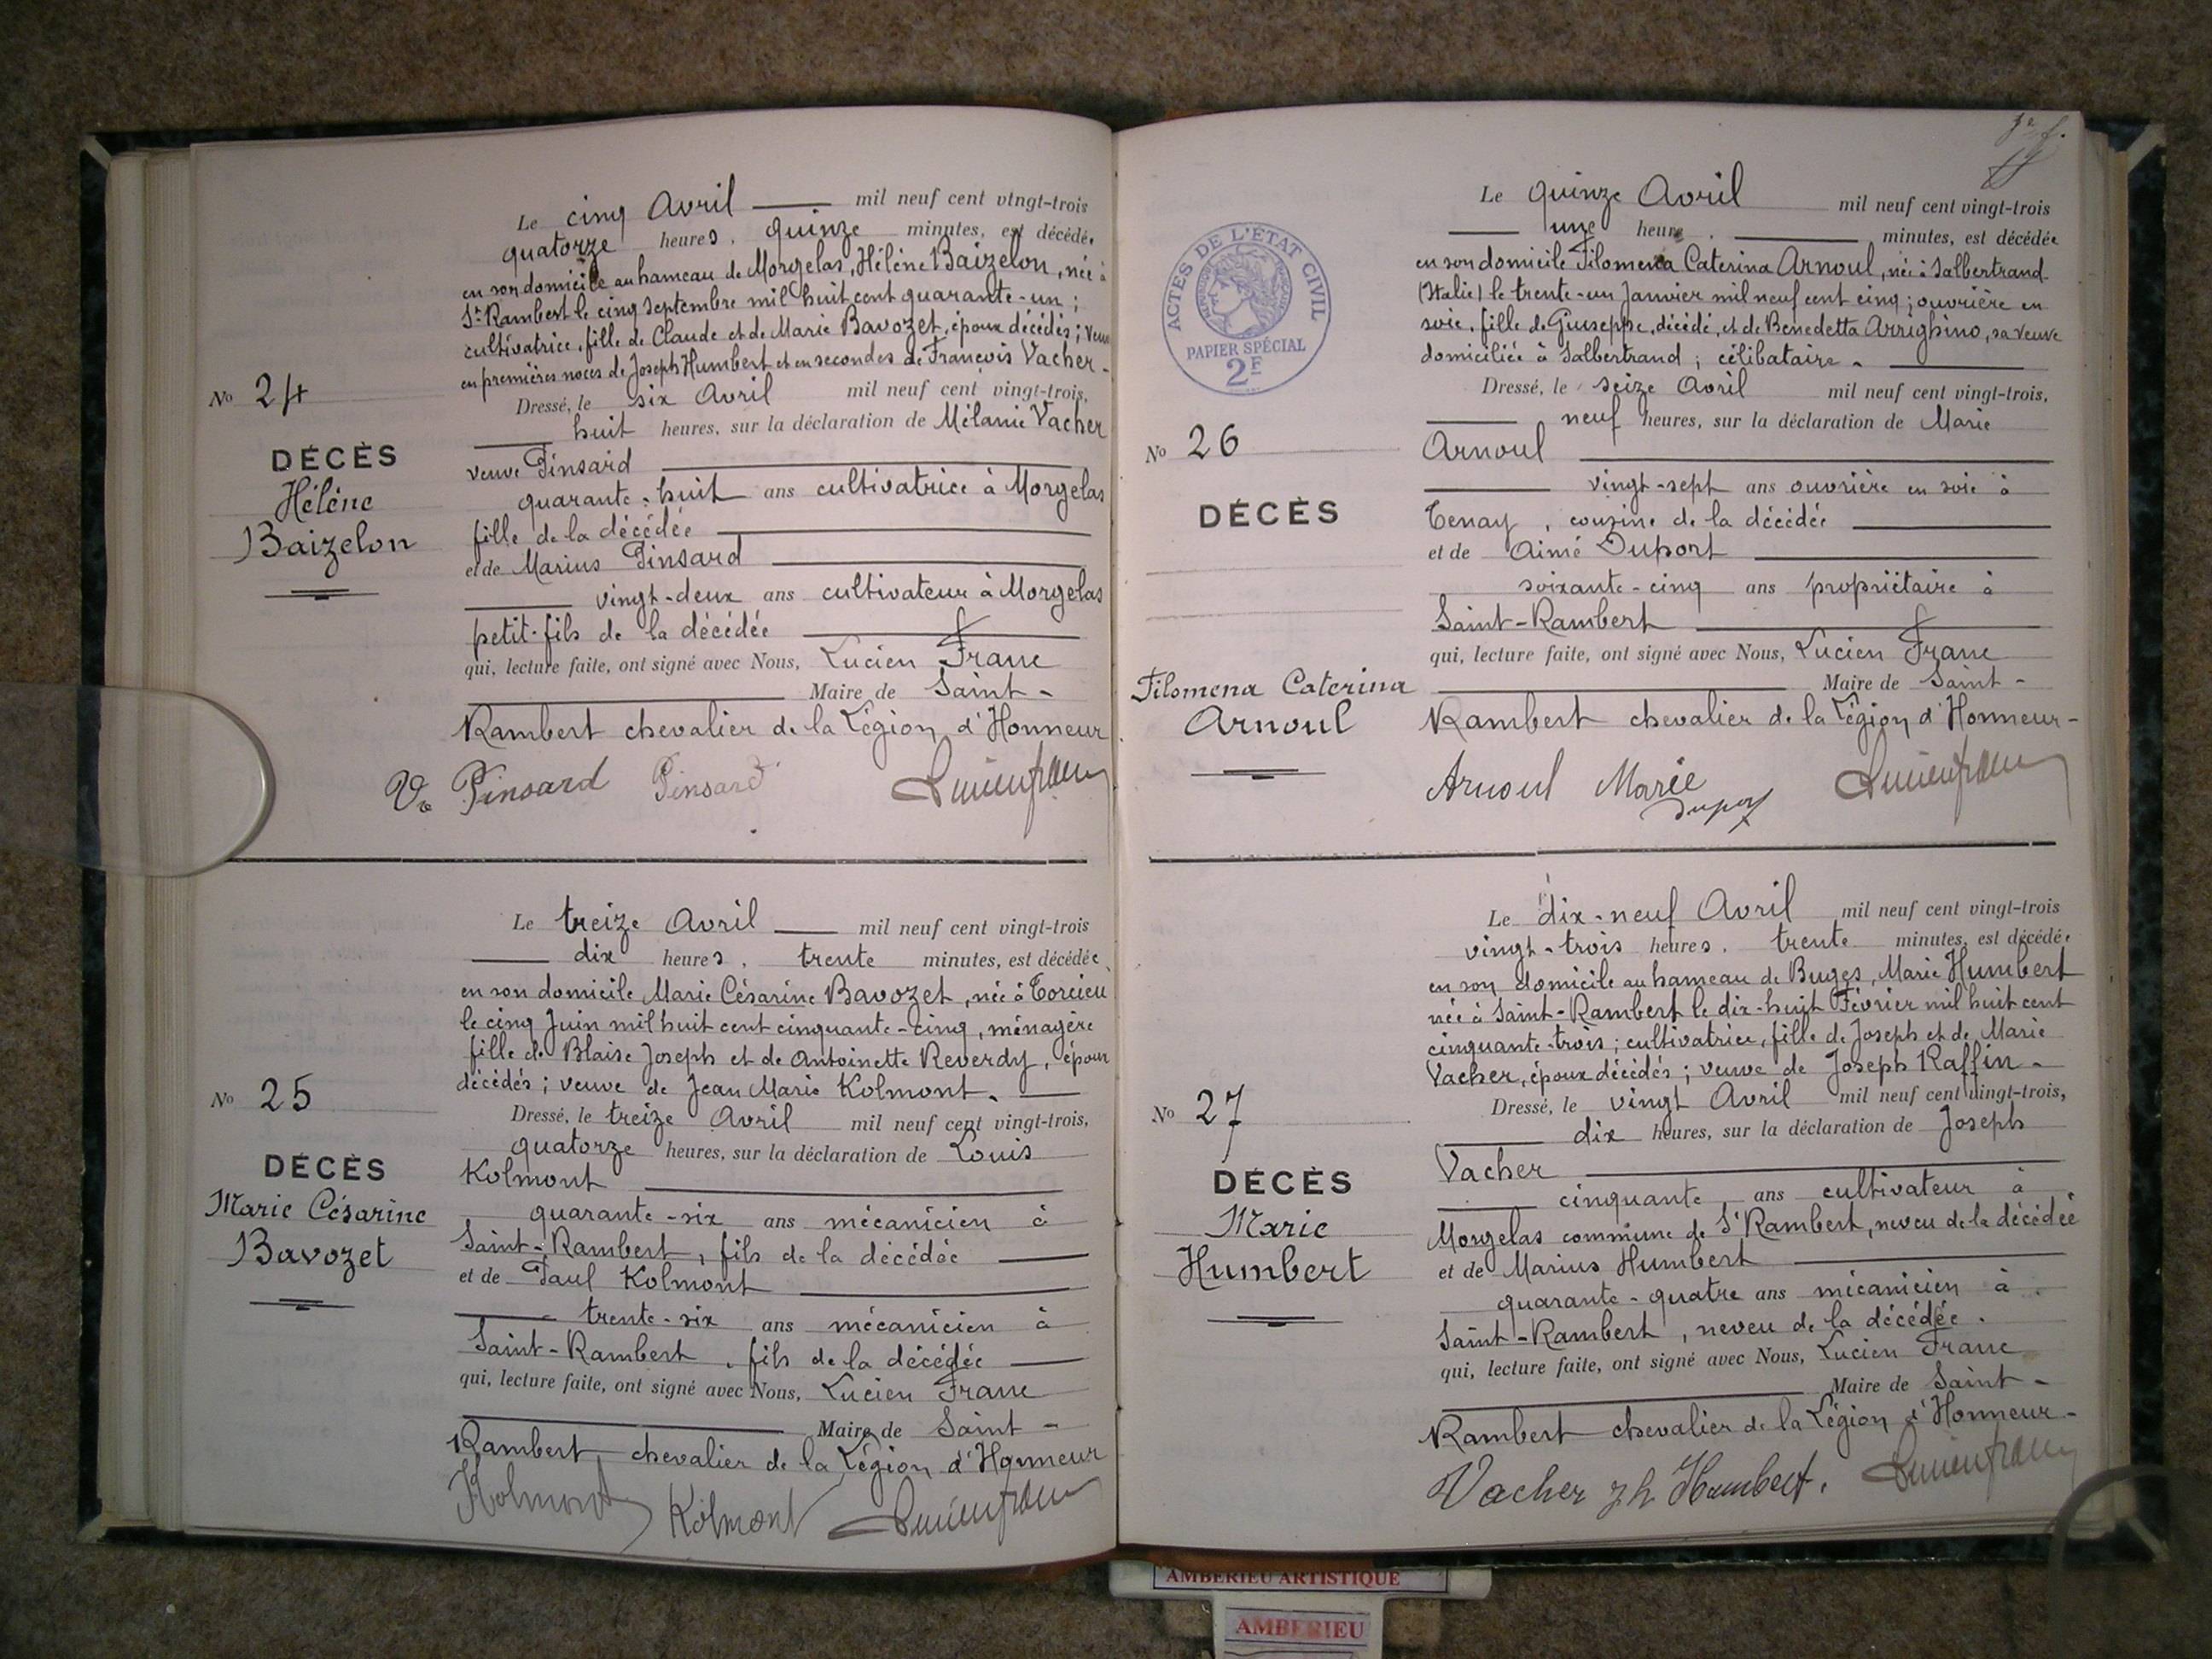 Le cinq Avril mil neuf cent vingt-trois
quatorze heures, quinze minutes, est décédée
en son domicile au hameau de Morgelas, Hélène Baizelon, née à
St Rambert le cinq Septembre mil huit cent quarante-un ;
cultivatrice, fille de Claude et de Marie Bavozet, époux décédés ; veuve
en premières noces de Joseph Humbert et en secondes de François Vacher -
Dressé, le six Avril mil neuf cent vingt-trois,
huit heures, sur la déclaration de Mélanie Vacher
veuve Pinsard
quarante-huit ans cultivatrice à Morgelas
fille de la décédée
et de Marius Pinsard
vingt-deux ans cultivateur à Morgelas
petit-fils de la décédée
qui, lecture faite, ont signé avec Nous, Lucien Franc
Maire de Saint-
Rambert chevalier de la Légion d'Honneur
Ve Pinsard Pinsard Lucien franc
No 24
DÉCÈS
Hélène
Baizelon
Le treize Avril mil neuf cent vingt-trois
dix heures, trente minutes, est décédée
en son domicile Marie Césarine Bavozet, née à Torcieu
le cinq Juin mil huit cent cinquante-cinq, ménagère
fille de Blaise Joseph et de Antoinette Reverdy, époux
décédés ; veuve de Jean Marie Kolmont.
Dressé, le treize Avril mil neuf cent vingt-trois,
quatorze heures, sur la déclaration de Louis
Kolmont
quarante-six ans mécanicien à
Saint-Rambert, fils de la décédée
et de Paul Kolmont
trente-six ans mécanicien à
Saint-Rambert, fils de la décédée
qui, lecture faite, ont signé avec Nous, Lucien Franc
Maire de Saint-
Rambert chevalier de la Légion d'Honneur
Kolmont Kolmont Lucien franc
No 25
DÉCÈS
Marie Césarine
Bavozet
Le quinze Avril mil neuf cent vingt-trois
une heure, minutes, est décédée
en son domicile Filomena Caterina Arnoul, née à Salbertrand
(Italie) le trente-un Janvier mil neuf cent cinq ; ouvrière en
soie, fille de Giuseppe, décédé, et de Benedetta Arrighino, sa veuve
domiciliée à Salbertrand ; célibataire -
Dressé, le seize Avril mil neuf cent vingt-trois,
neuf heures, sur la déclaration de Marie
Arnoul
vingt-sept ans ouvrière en soie à
Tenay, cousine de la décédée
et de Aimé Duport
soixante-cinq ans propriétaire à
Saint-Rambert
qui, lecture faite, ont signé avec Nous, Lucien Franc
Maire de Saint-
Rambert chevalier de la Légion d'Honneur-
Arnoul Marie Lucien franc
Duport
ACTES DE L'ÉTAT CIVIL
PAPIER SPÉCIAL
2F
No 26
DÉCÈS
Filomena Caterina
Arnoul
Le dix-neuf Avril mil neuf cent vingt-trois
vingt-trois heures, trente minutes, est décédée
en son domicile au hameau de Buges, Marie Humbert
née à Saint-Rambert le dix-huit Février mil huit cent
cinquante-trois ; cultivatrice, fille de Joseph et de Marie
Vacher, époux décédés ; veuve de Joseph Raffin -
Dressé, le vingt Avril mil neuf cent vingt-trois,
dix heures, sur la déclaration de Joseph
Vacher
cinquante ans cultivateur à
Morgelas commune de St Rambert, neveu de la décédée
et de Marius Humbert
quarante-quatre ans mécanicien à
Saint-Rambert, neveu de la décédée.
qui, lecture faite, ont signé avec Nous, Lucien Franc
Maire de Saint-
Rambert chevalier de la Légion d'Honneur-
Vacher Jh Humbert. Lucien franc
No 27
DÉCÈS
Marie
Humbert
AMBERIEU ARTISTIQUE
AMBERIEU